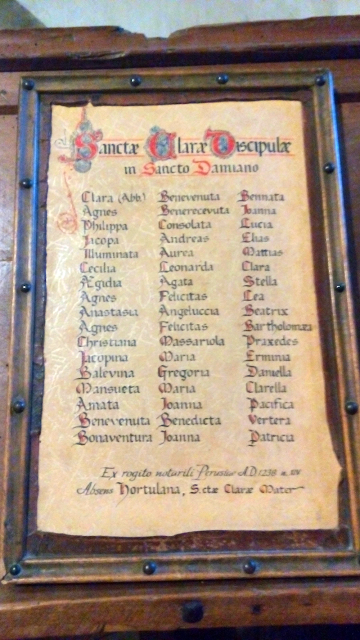 Sanctæ Claræ Discipulæ
in Sancto Damiano
Clara (Abb) Benevenuta Bennata
Agnes Benerecevuta Joanna
Philippa Consolata Lucia
Jacopa Andreas Elias
Illuminata Aurea Mattias
Cecilia Leonarda Clara
Ægidia Agata Stella
Agnes Felicitas Lea
Anastasia Angeluccia Beatrix
Agnes Felicitas Bartholomæa
Christiana Massariola Praxedes
Jacopina Maria Erminia
Balevina Gregoria Daniella
Mansueta Maria Clarella
Amata Joanna Pacifica
Benevenuta Benedicta Vertera
Bonaventura Joanna Patricia
Ex rogito notarili Perusiæ A.D. 1238
Absens Hortulana, S.ctæ Claræ Mater